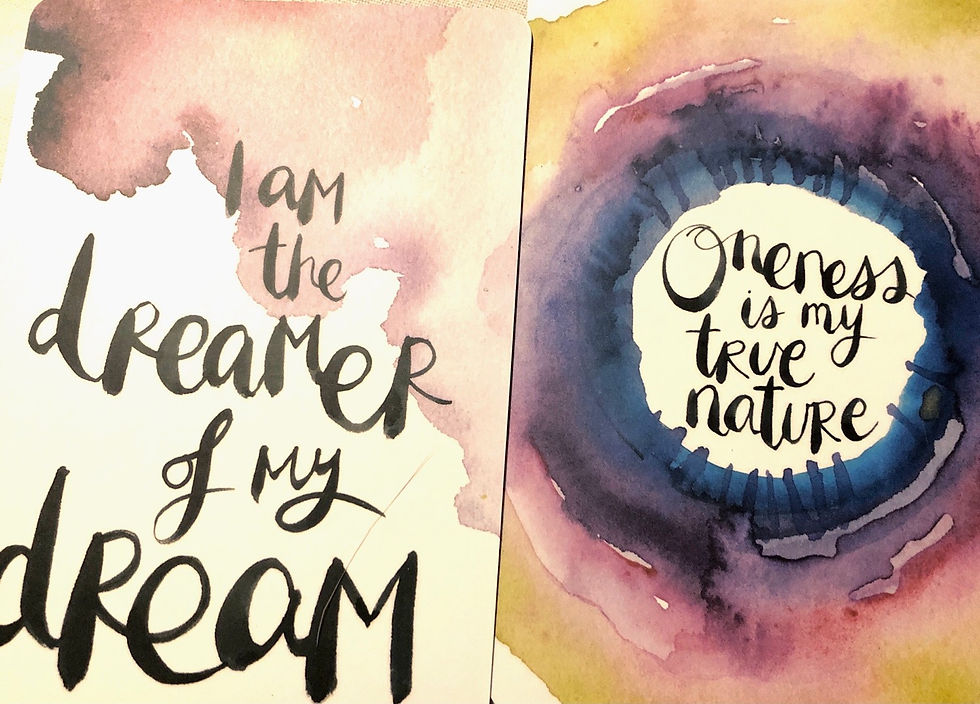 I am
the
dreamer
of my
dream
Oneness
is my
true
nature